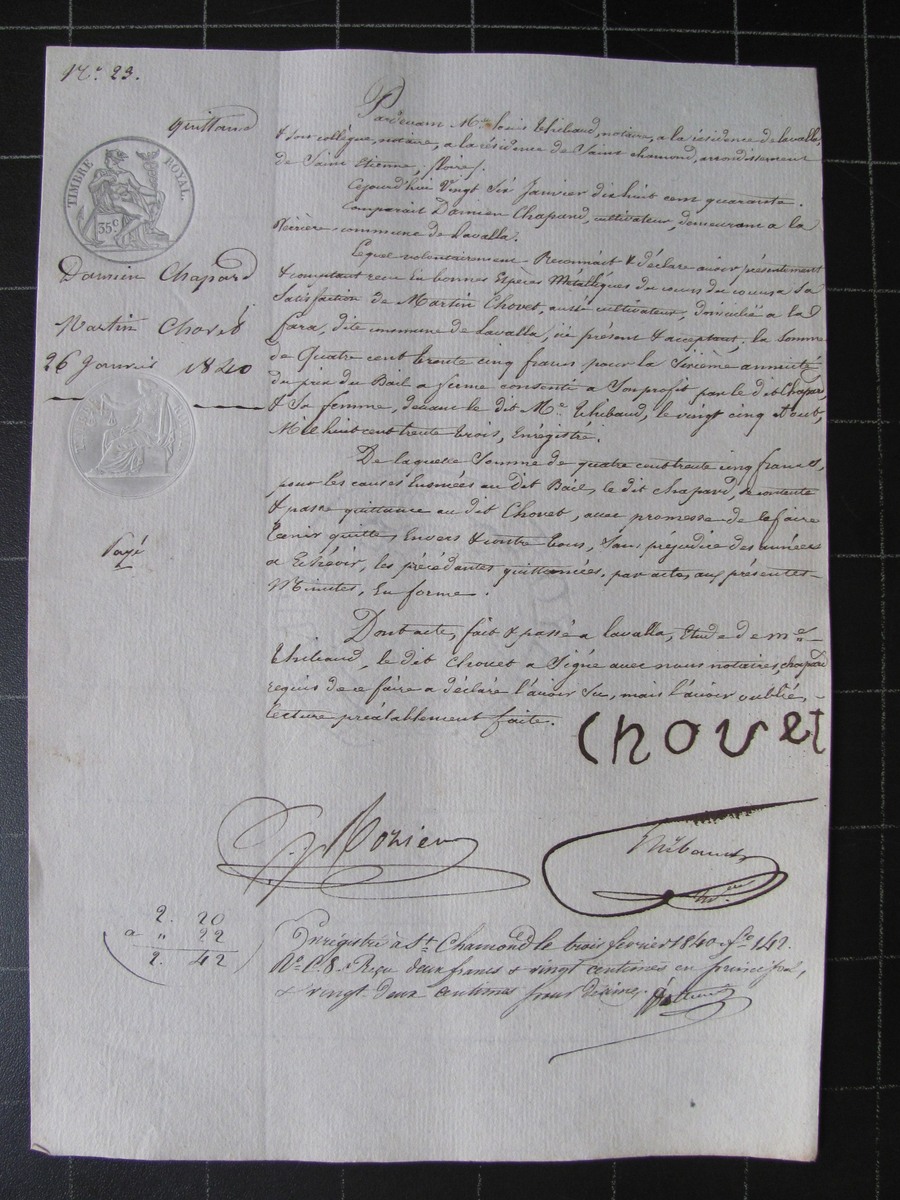 N.° 23.
quittance
TIMBRE ROYAL
35c
Damien Chapard
Martin Chovet
26 Janvier 1840
Payé
Pardevant Me Louis Thibaud, notaire, a la résidence de lavalla,
& son collègue, notaire, a la résidence de Saint chamond, arrondissement
de Saint Etienne (Loire).
Cejourd'hui Vingt Six Janvier dix huit cent quarante.
Comparait Damien Chapard, cultivateur, demeurant a la
commune de Lavalla.
Lequel volontairement Reconnait & déclare avoir présentement
& comptant reçu en bonnes Espèces Métalliques du cours de ce jour a sa
Satisfaction de Martin Chovet, aussi cultivateur, domicilié a la
fara, dite commune de Lavalla, ici présent & acceptant, la Somme
de Quatre cent trente cinq francs pour la Sixième annuité
du prix du Bail a ferme consenti a Son profit par le dit Chapard,
& Sa femme, devant le dit Me Thibaud, le vingt cinq Aout,
Mil huit cent trente trois, Enrégistré.
De laquelle Somme de quatre cent trente cinq francs,
pour les causes Enoncées au dit Bail, le dit chapard, se contente
& passe quittance au dit Chovet, avec promesse de le faire
tenir quitte, Envers & contre tous, Sans préjudice des années
a Echéoir, les précédentes quittancées, par actes aux présentes
Minutes, En forme.
Dont acte, fait & passé a lavalla, Etude de me
Thibaud, le dit Chovet a Signé avec nous notaires, chapard
requis de ce faire a déclaré l'avoir Su, mais l'avoir oublié,
Lecture préalablement faite.
Chovet
Thibaud
2. 20
a " 22
2. 42
Enrégistré à St Chamond le trois février 1840 fo 142.
Vo C. 8. Reçu deux francs & vingt centimes en principal,
& vingt-deux centimes pour décime.